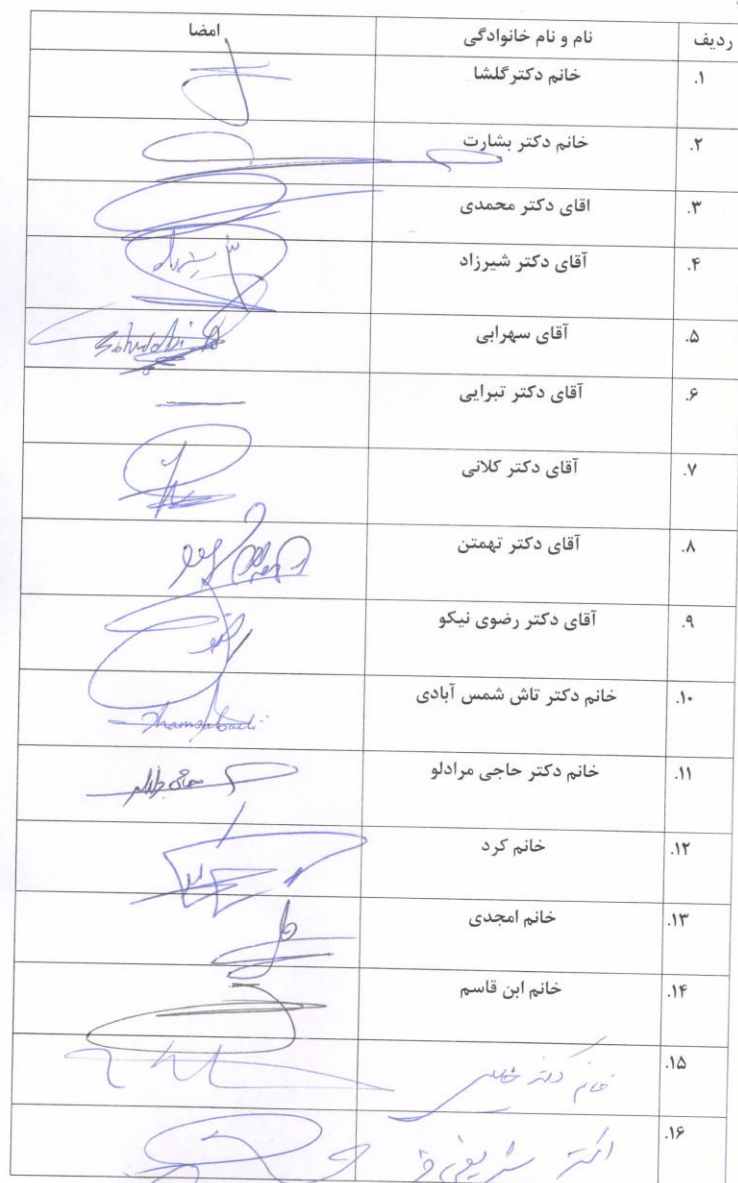 ردیف نام و نام خانوادگی امضا
۱. خانم دکتر گلشا
۲. خانم دکتر بشارت
۳. اقای دکتر محمدی
۴. آقای دکتر شیرزاد
۵. آقای سهرابی
۶. آقای دکتر تبرایی
۷. آقای دکتر کلانی
۸. آقای دکتر تهمتن
۹. آقای دکتر رضوی نیکو
۱۰. خانم دکتر تاش شمس آبادی
۱۱. خانم دکتر حاجی مرادلو
۱۲. خانم کرد
۱۳. خانم امجدی
۱۴. خانم ابن قاسم
۱۵. خانم دکتر
۱۶. دکتر شریفی